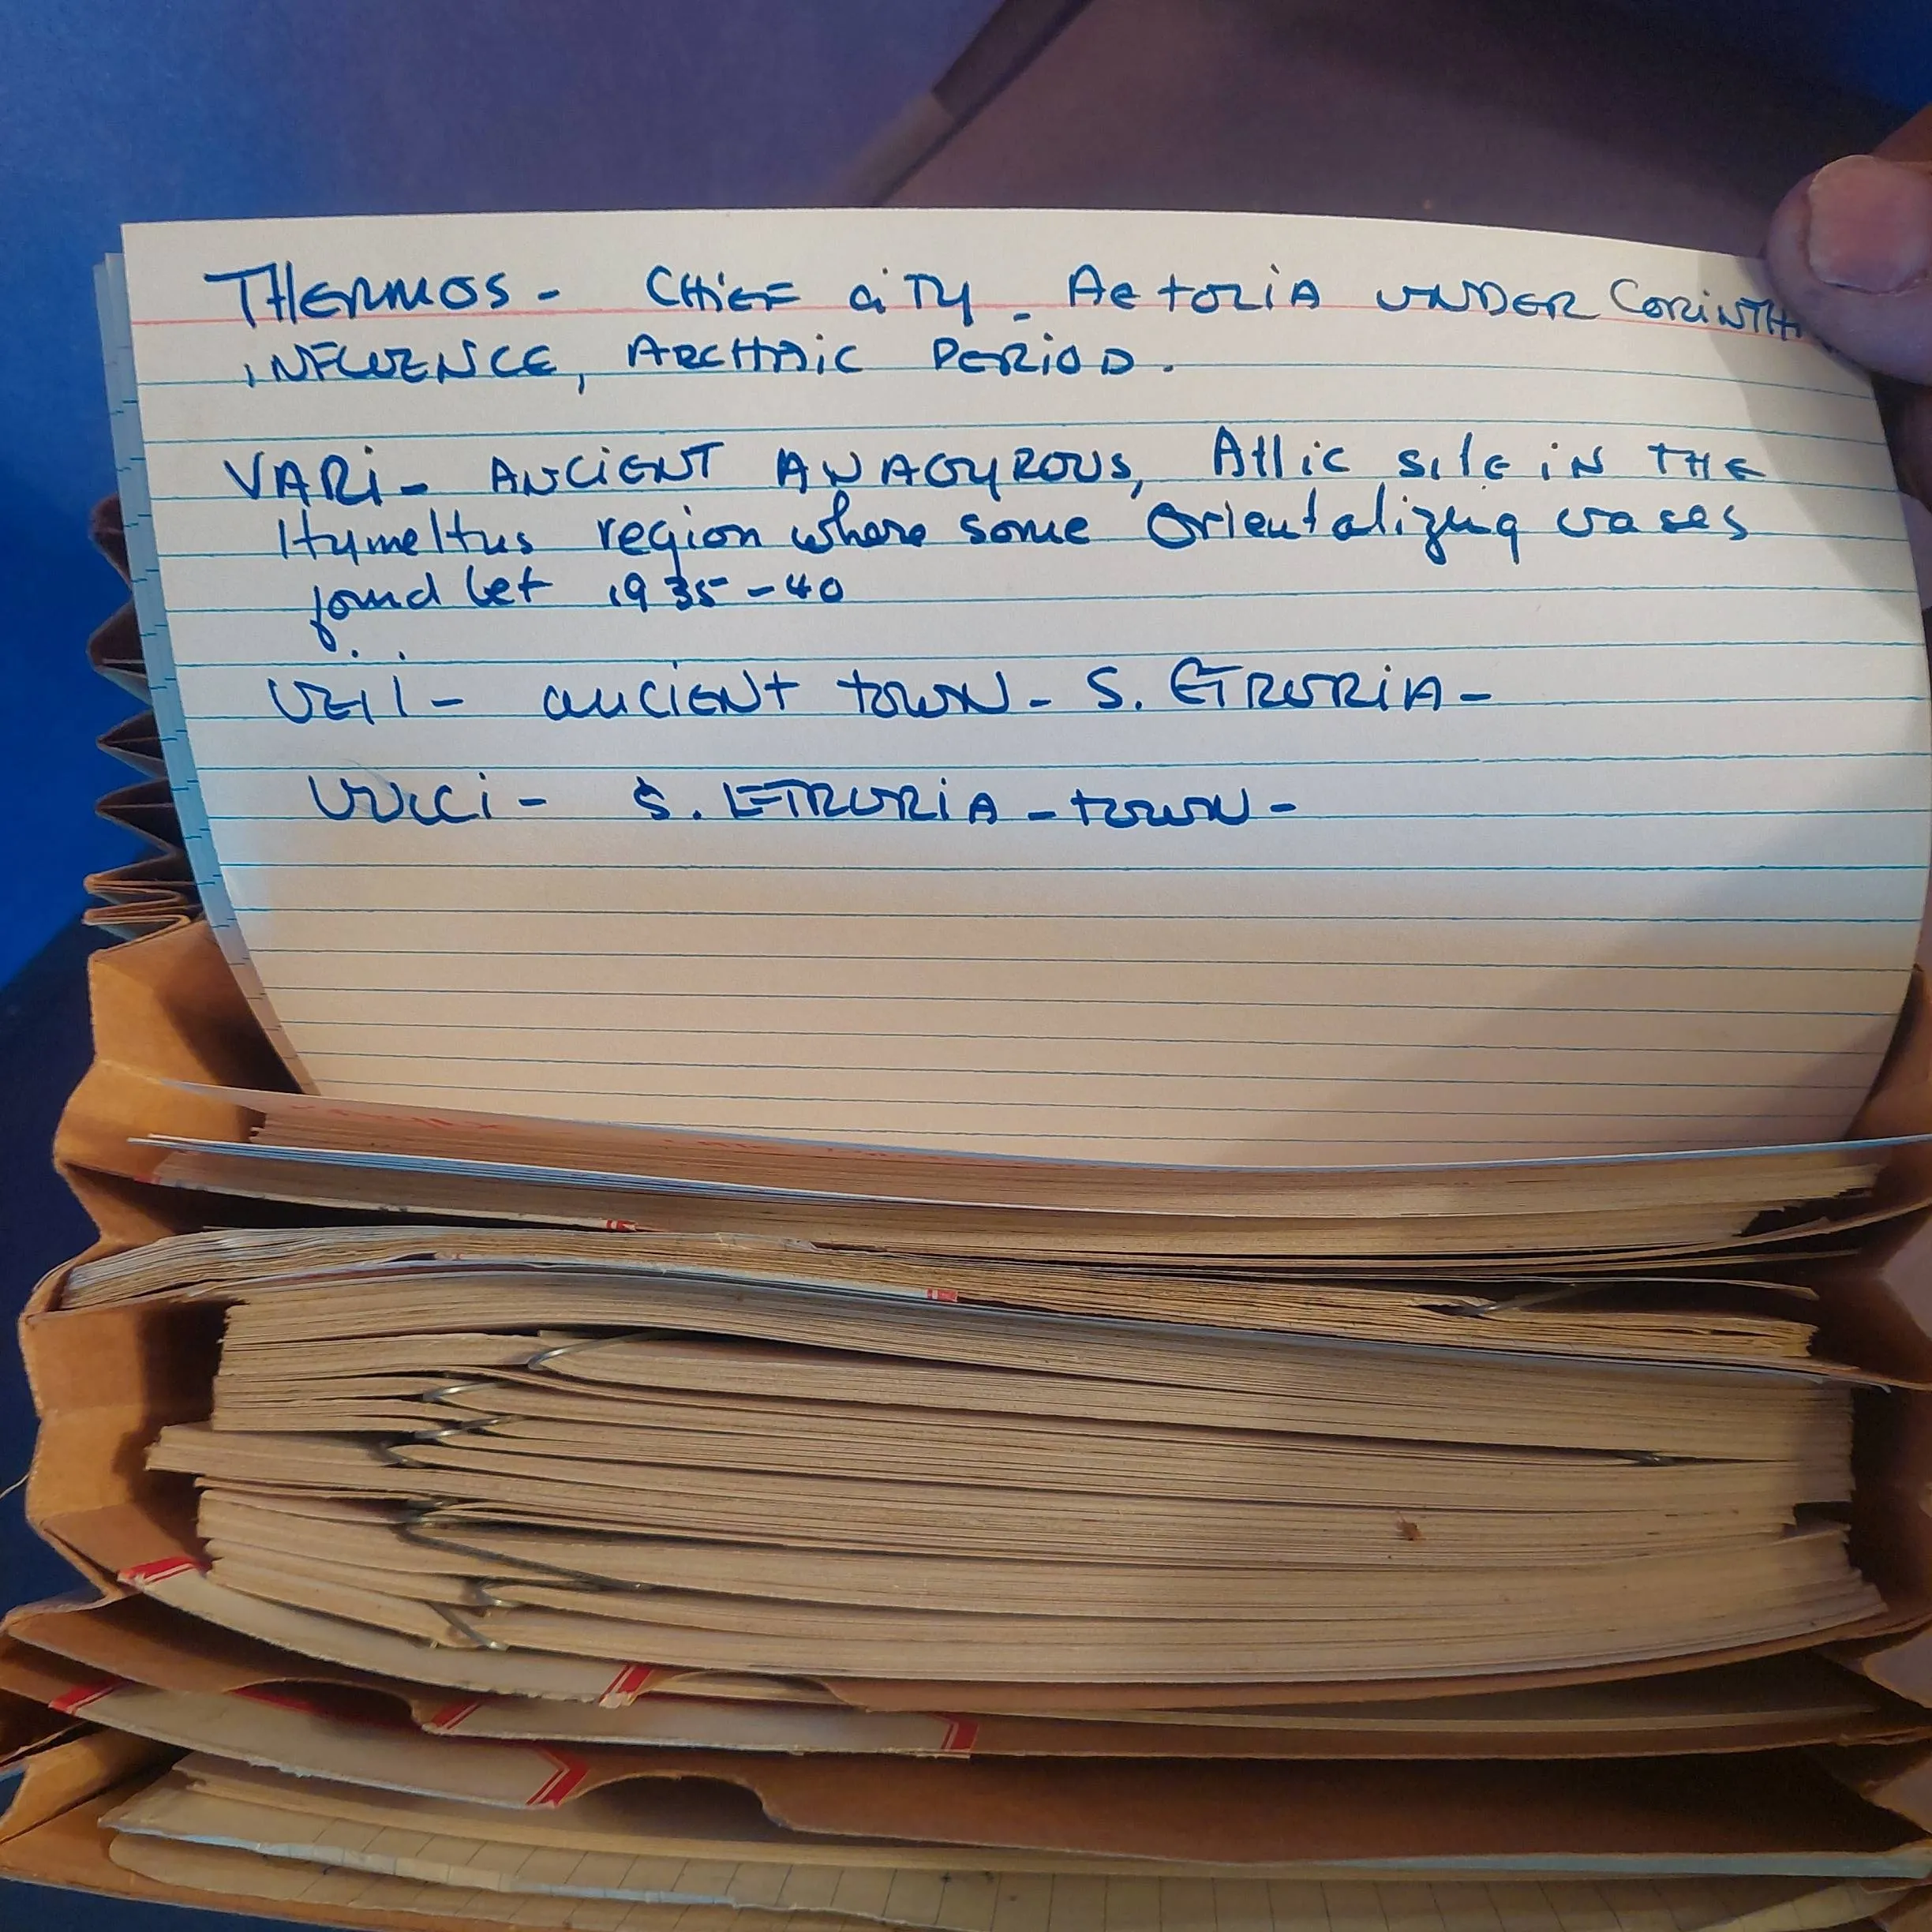 THERMOS - CHIEF CITY - AETOLIA UNDER CORINTH
INFLUENCE, ARCHAIC PERIOD.
VARI - ANCIENT ANAGYROUS, Attic site in THE
Hymettus region where some Orientalizing vases
found bet 1935-40
VEII - ancient town - S. ETRURIA -
VULCI - S. ETRURIA - town -